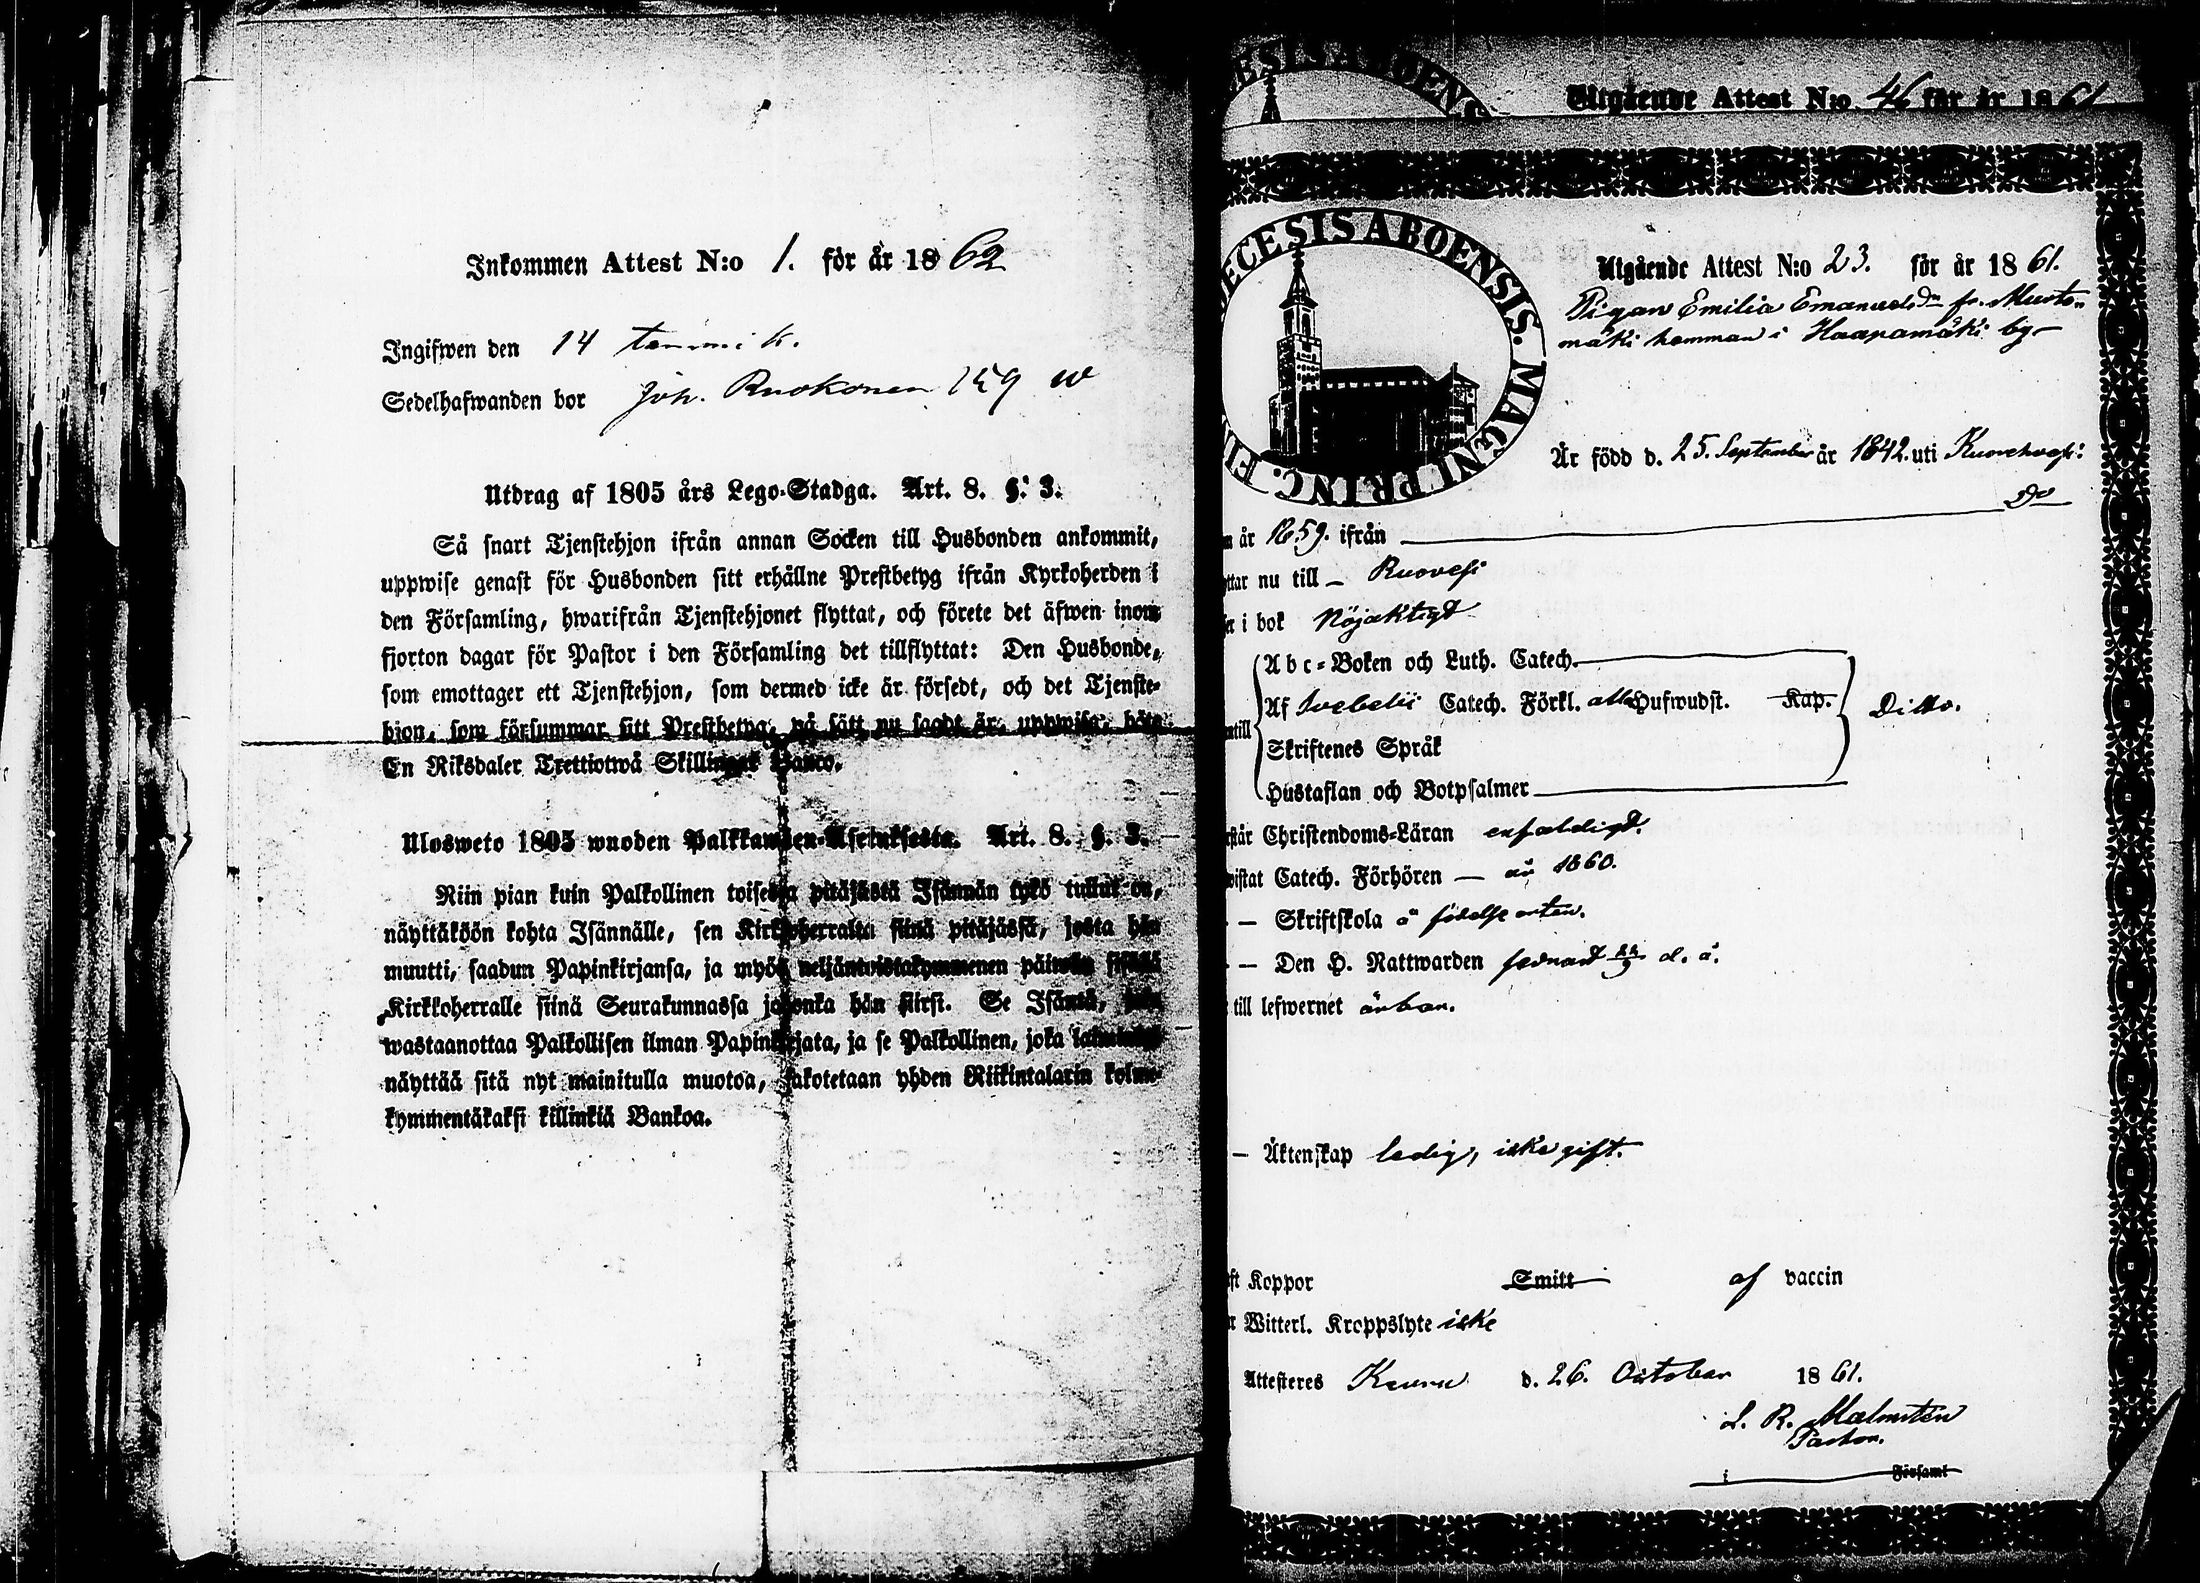 Inkommen Attest N:o 1. för år 1862
Ingifwen den 14 tammik.
Sedelhafwanden bor Joh. Ruokonen 159 w
Utdrag af 1805 års Lego-Stadga. Art. 8. §. 3.
Så snart Tjenstehjon ifrån annan Socken till Husbonden ankommit,
uppwise genast för Husbonden sitt erhållne Prestbetyg ifrån Kyrkoherden i
den Församling, hwarifrån Tjenstehjonet flyttat, och förete det äfwen inom
fjorton dagar för Pastor i den Församling det tillflyttat: Den Husbonde,
som emottager ett Tjenstehjon, som dermed icke är försedt, och det Tjenste-
hjon, som försummar sitt Prestbetyg, på sätt nu sagdt är, uppwisa, böte
En Riksdaler Trettiotwå Skillingar Banco.
Ulosweto 1805 wuoden Palkkawäen-Asetuksesta. Art. 8. §. 3.
Niin pian kuin Palkollinen toisesta pitäjästä Isännän tykö tullut on,
näyttäköön kohta Isännälle, sen Kirkkoherralta siinä pitäjässä, josta hän
muutti, saadun Papinkirjansa, ja myös neljäntoistakymmenen päiwän sisällä
Kirkkoherralle siinä Seurakunnassa johonka hän siirsi. Se Isäntä, joka
wastaanottaa Palkollisen ilman Papinkirjata, ja se Palkollinen, joka laiminlyö
näyttää sitä nyt mainitulla muotoa, sakotetaan yhden Riikintalarin kolme-
kymmentäkaksi killinkiä Bankoa.
DIECESIS ABOENSIS
Utgående Attest N:o 46 för år 1861
ECESIS ABOENSIS. MAGNI PRINC. FI
Utgående Attest N:o 23. för år 1861.
Pigan Emilia Emanuelsdr fr. Musta-
mäki hemman i Haapamäki by
Är född d. 25. September år 1842. uti Kuorehvesi:
år 1859. ifrån Do
ttar nu till Ruovesi
er i bok Nöjaktigt
Abc-Boken och Luth. Catech.
ntill Af Svebelii Catech. Förkl. alla Hufwudst. Kap. Ditto.
Skriftenes Språk
Hustaflan och Botpsalmer
står Christendoms-Läran enfaldigt.
wistat Catech. Förhören — år 1860.
— Skriftskola å födelse orten.
— Den H. Nattwarden senast 22/9 d. å.
till lefwernet ärbar.
— Äktenskap ledig, icke gift.
ft Koppor Smitt af vaccin
r Witterl. Kroppslyte icke
Attesteres Keuru d. 26. October 1861.
L. R. Malmstén
Pastor.
i Församl